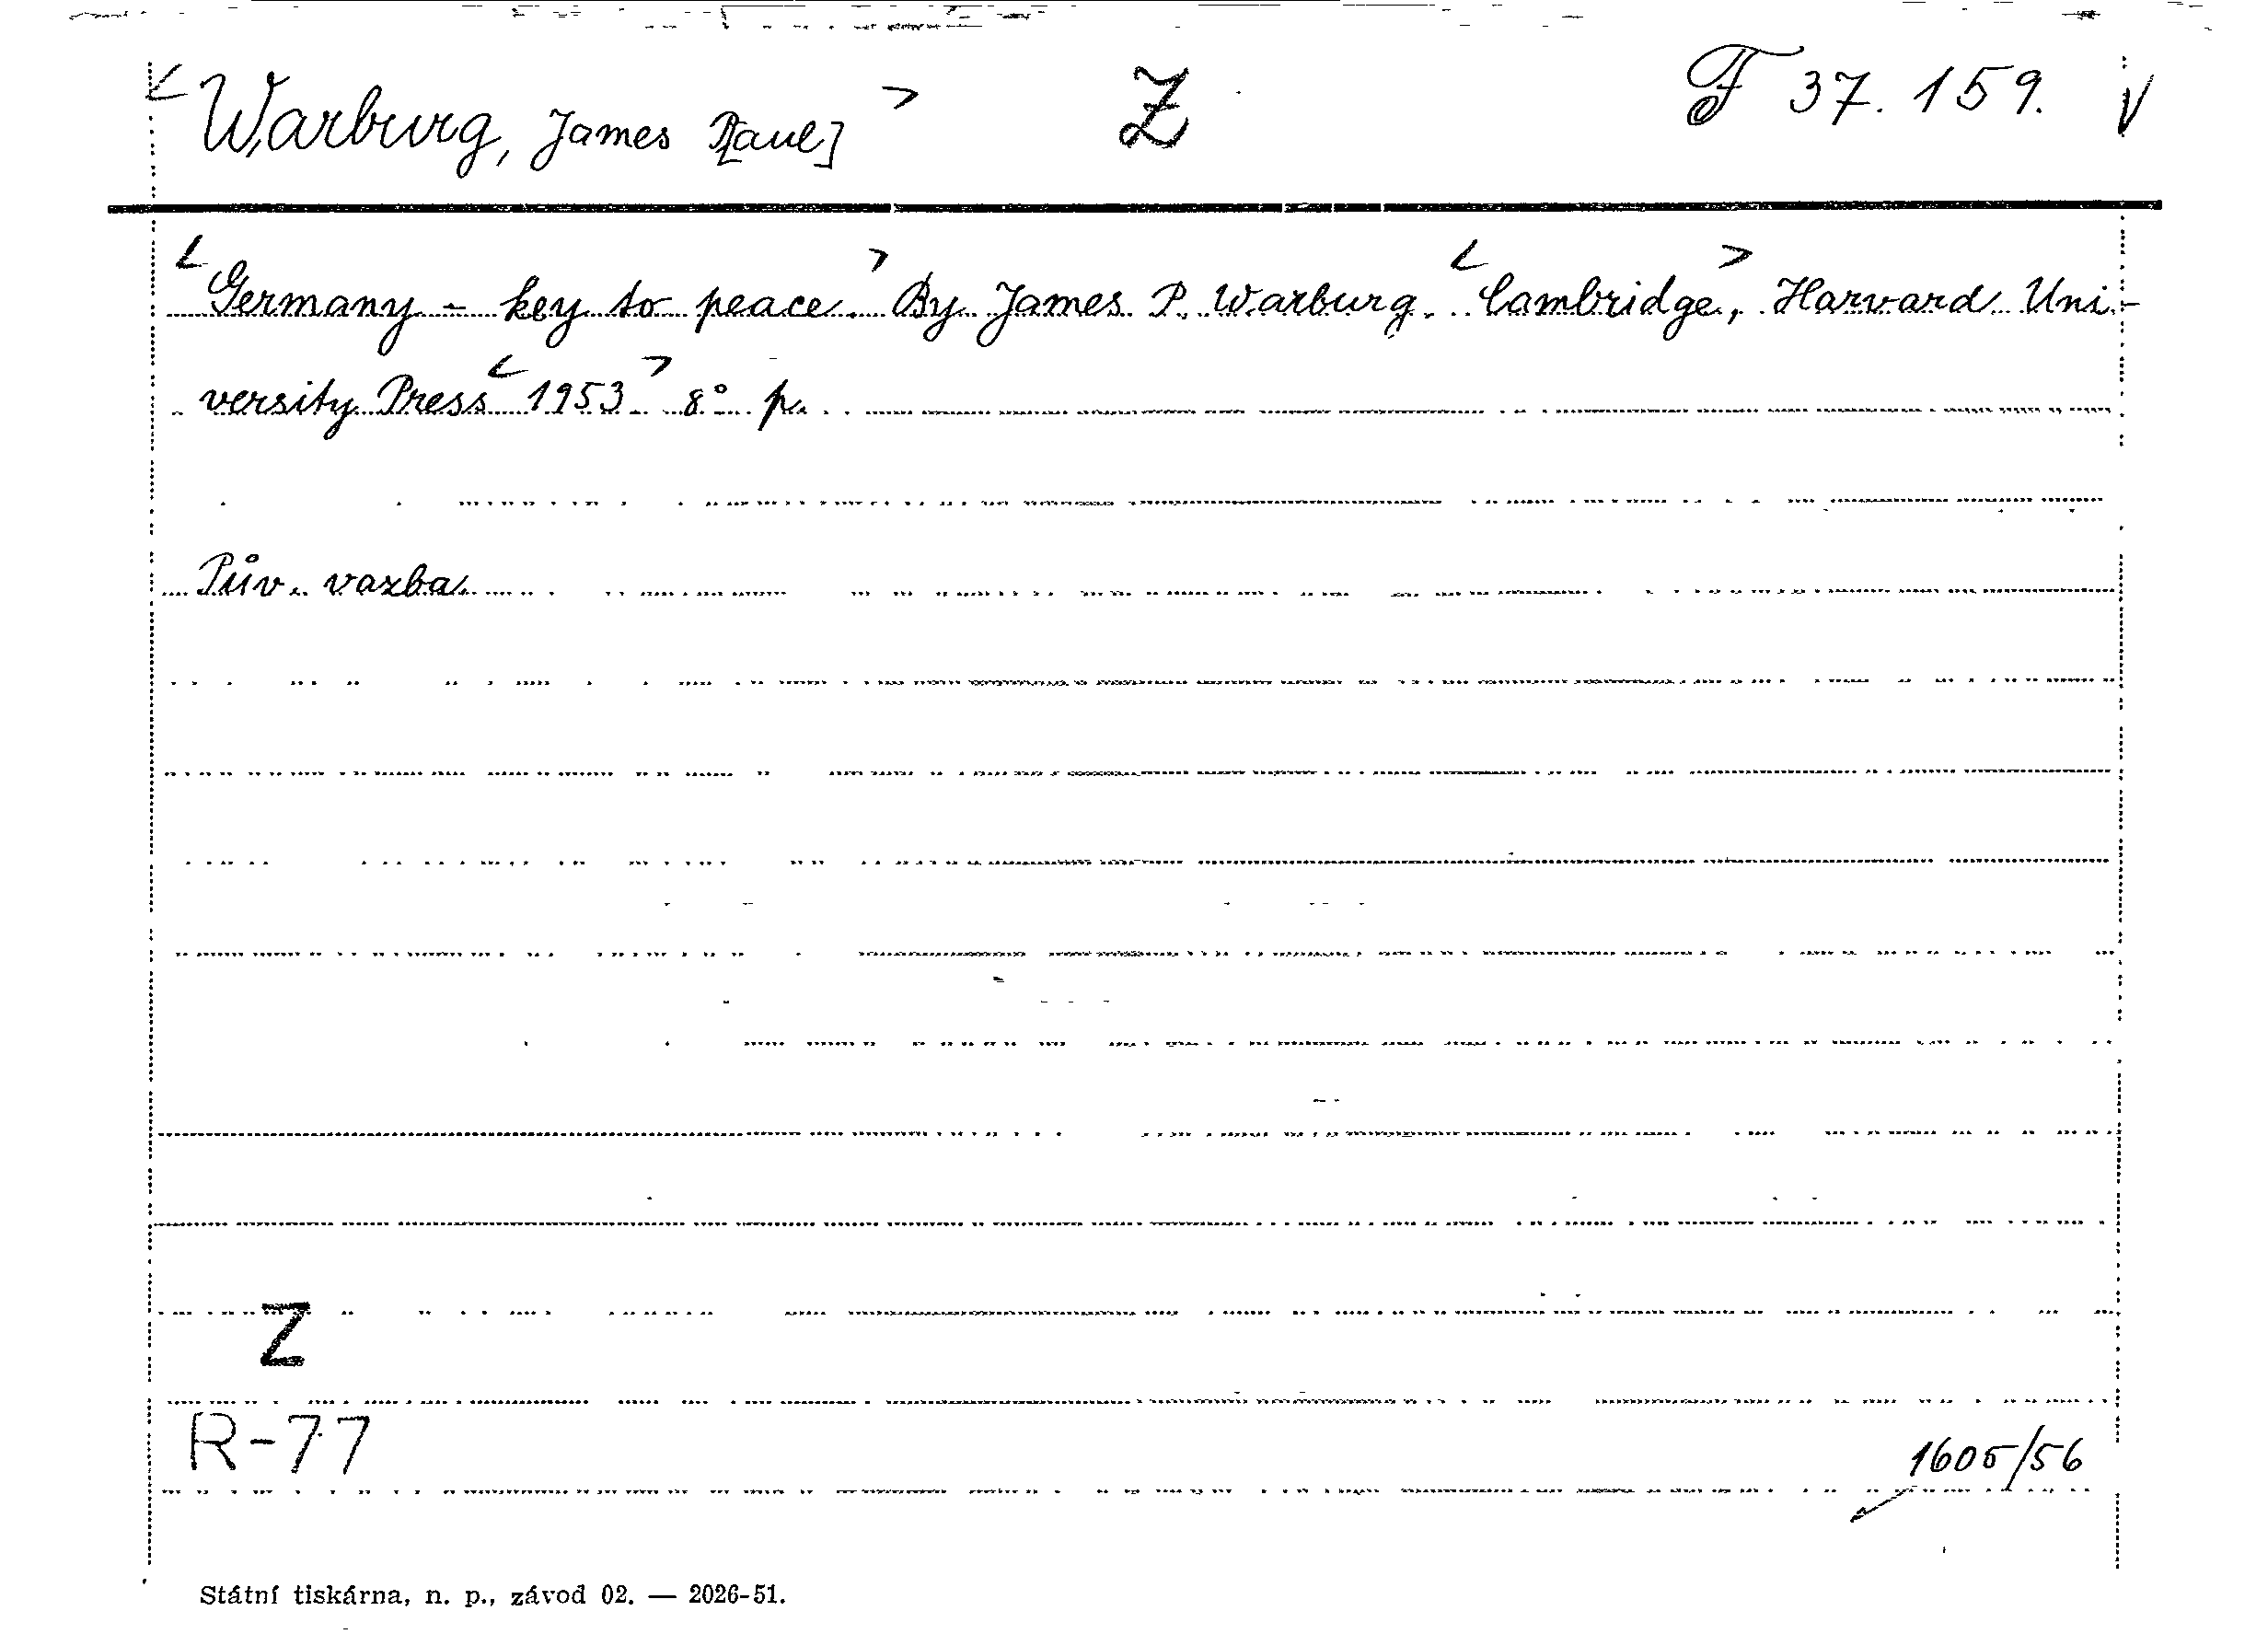 < Warburg, James P[aul] > Z F 37.159. V
< Germany - key to peace. > By James P. Warburg. < Cambridge, > Harvard Uni-
versity Press < 1953 > 8° p.
Pův. vazba
Z
R-77
1605/56
Státní tiskárna, n. p., závod 02. — 2026-51.